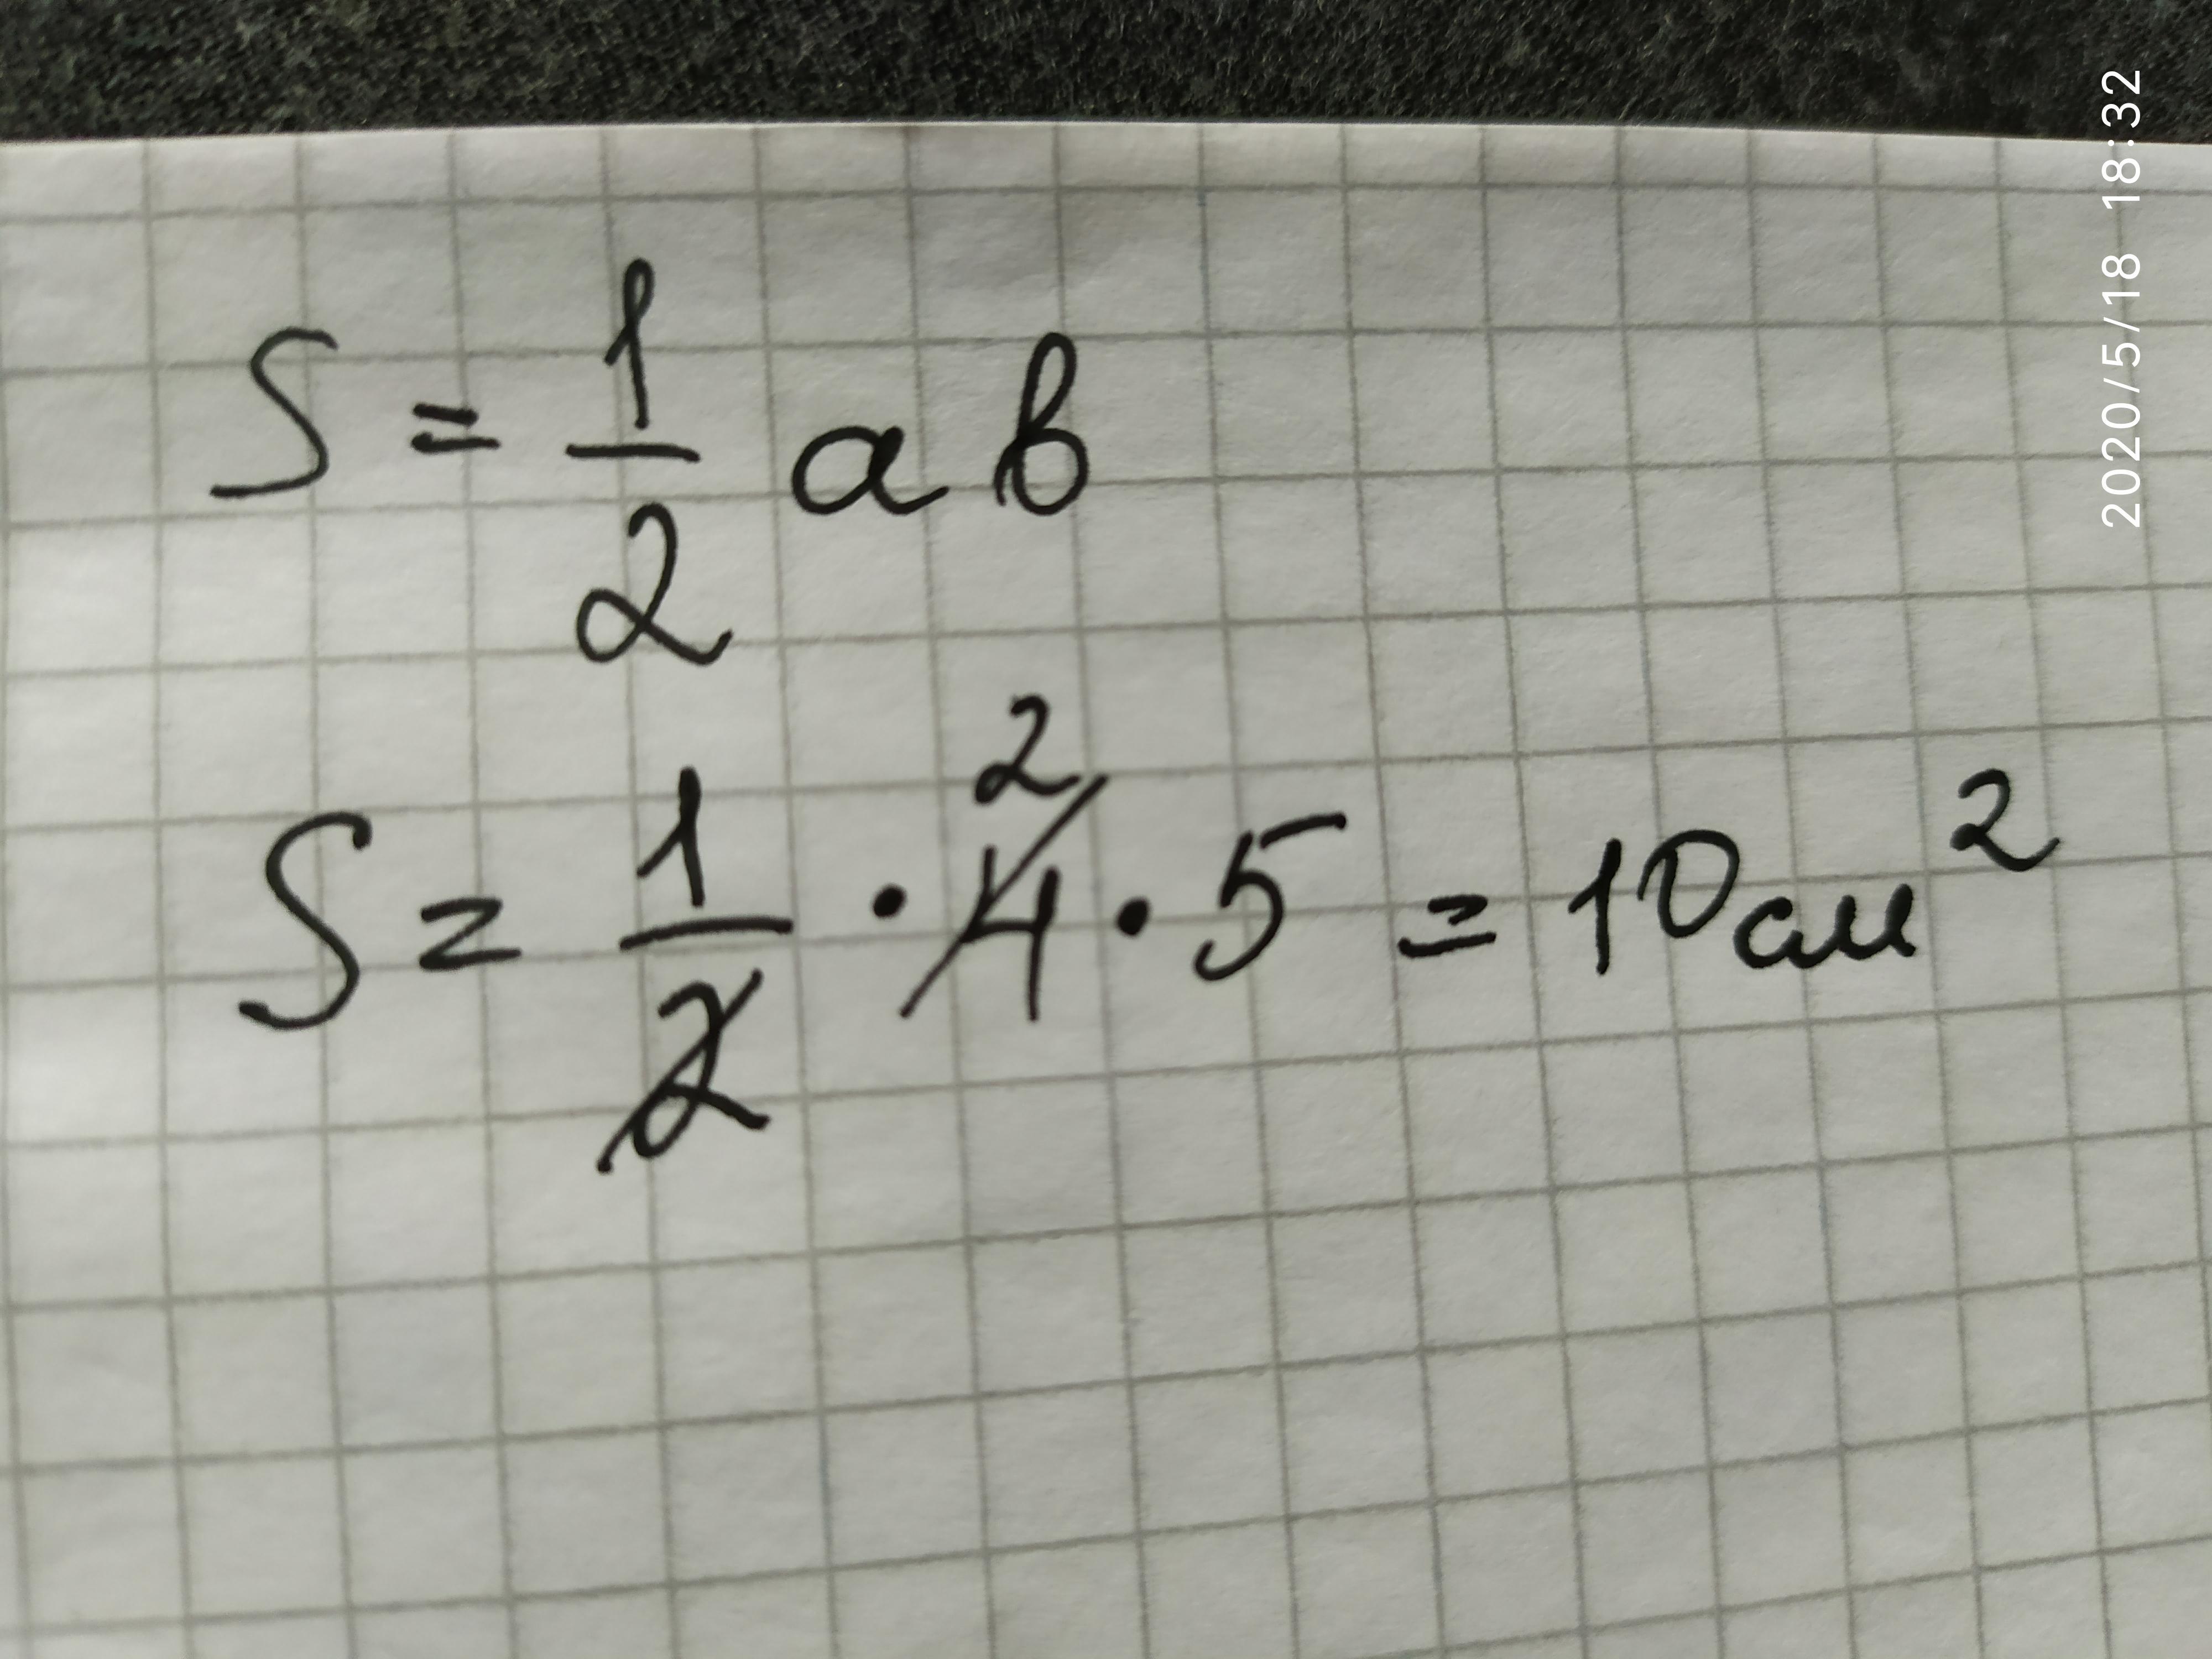 S = 1/2 ав
S = 1/2 · 4 2 · 5 = 10 см²
2020/5/18 18:32